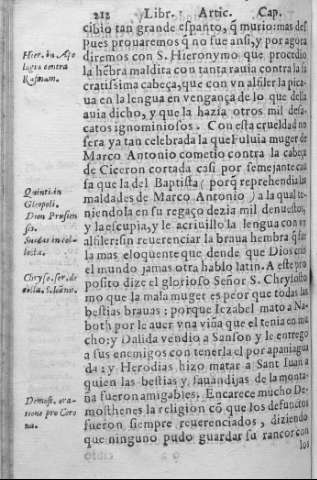 212 Libr. Artic. Cap.
cibio tan grande espanto, q̃ murio: mas des
pues prouaremos q̃ no fue ansi, y por agora
diremos con S. Hieronymo que procedio
la hẽbra maldita con tanta rauia contra la sa
cratissima cabeça, que con vn alfiler la pica-
ua en la lengua en vengança de lo que della
auia dicho, y que la hazia otros mil desa-
catos ignominiosos. Con esta crueldad no
sera ya tan celebrada la que Fuluia muger de
Marco Antonio cometio contra la cabeça
de Ciceron cortada casi por semejante cau
sa que la del Baptista (porq̃ reprehendia las
maldades de Marco Antonio) a la qual te-
niendola en su regaço dezia mil denuestos,
y la escupia, y le acriuillo la lengua con vn
alfiler: sin reuerenciar la braua hembra q̃ fue
la mas eloquente que dende que Dios crio
el mundo jamas otra hablo latin. A este pro
posito dize el glorioso Señor S. Chrysosto
mo que la mala muger es peor que todas las
bestias brauas: porque Iezabel mato a Na-
both por le auer vna viña que el tenia en mu
cho: y Dalida vendio a Sanson y le entrego
a sus enemigos con tenerla el por apaniagua
da: y Herodias hizo matar a Sant Iuan a
quien las bestias y sauandijas de la monta-
ña fueron amigables. Encarece mucho De-
mosthenes la religion cõ que los defunctos
fueron siempre reuerenciados, diziendo
que ninguno pudo guardar su rancor con
los
Hier. in Apo
logia contra
Rufinum.
Quinti. in
Dion Prusien
sis.
Suidas in col-
lecta.
Chryso. ser. de
Demost. ora-
tione pro Coro
na.